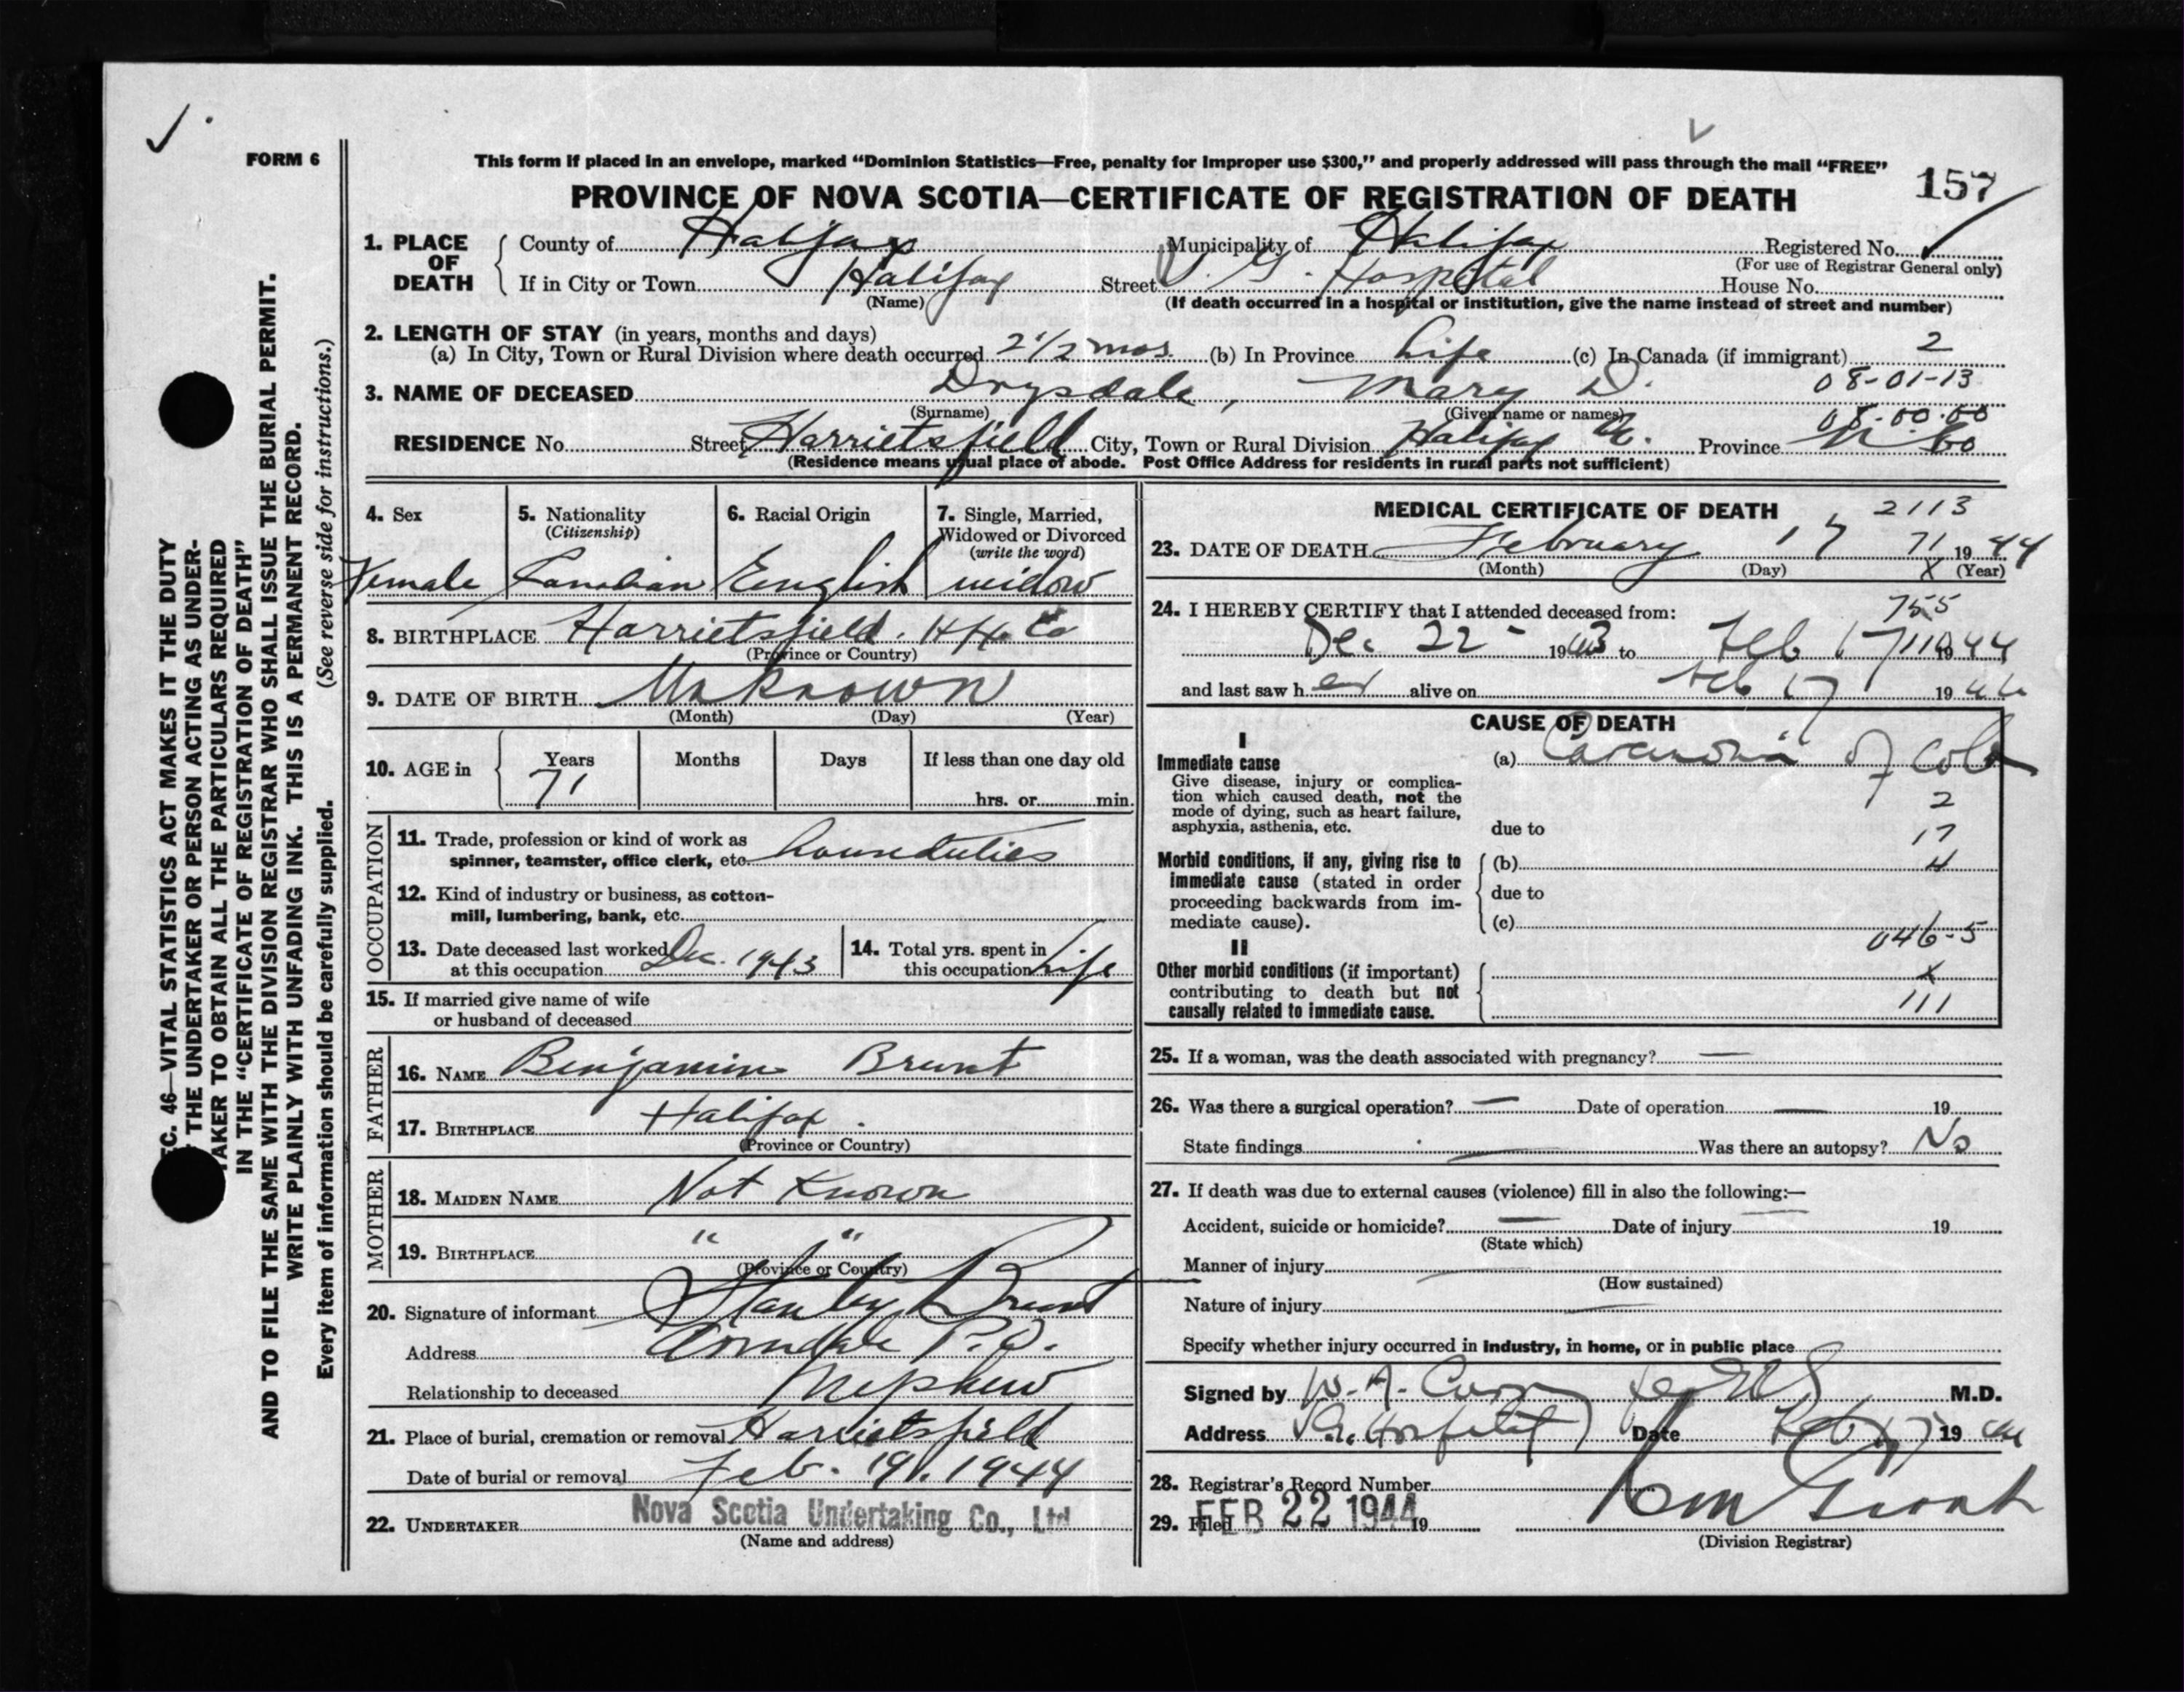 FORM 6
This form if placed in an envelope, marked “Dominion Statistics—Free, penalty for improper use $300,” and properly addressed will pass through the mail “FREE”
157
PROVINCE OF NOVA SCOTIA—CERTIFICATE OF REGISTRATION OF DEATH
1. PLACE OF DEATH County of Halifax Municipality of Halifax Registered No.
(For use of Registrar General only)
If in City or Town Halifax Street V. G. Hospital House No.
(Name) (If death occurred in a hospital or institution, give the name instead of street and number)
2. LENGTH OF STAY (in years, months and days)
(a) In City, Town or Rural Division where death occurred 2 1/2 mos (b) In Province Life (c) In Canada (if immigrant) 2
3. NAME OF DECEASED Drysdale, Mary D. 08-01-13
(Surname) (Given name or names) 08-00-00
RESIDENCE No. Street Harrietsfield City, Town or Rural Division Halifax Province
(Residence means usual place of abode. Post Office Address for residents in rural parts not sufficient)
4. Sex 5. Nationality (Citizenship) 6. Racial Origin 7. Single, Married, Widowed or Divorced (write the word)
Female Canadian English widow
8. BIRTHPLACE Harrietsfield. Hfx Co
(Province or Country)
9. DATE OF BIRTH Unknown
(Month) (Day) (Year)
10. AGE in Years Months Days If less than one day old
71 hrs. or min.
OCCUPATION
11. Trade, profession or kind of work as
spinner, teamster, office clerk, etc. houseduties
12. Kind of industry or business, as cotton-
mill, lumbering, bank, etc.
13. Date deceased last worked at this occupation Dec. 1943 14. Total yrs. spent in this occupation Life
15. If married give name of wife
or husband of deceased
FATHER
16. NAME Benjamin Brunt
17. BIRTHPLACE Halifax.
(Province or Country)
MOTHER
18. MAIDEN NAME Not Known
19. BIRTHPLACE " "
(Province or Country)
20. Signature of informant Stanley Brunt
Address Armdale P.O.
Relationship to deceased Nephew
21. Place of burial, cremation or removal Harrietsfield
Date of burial or removal Feb. 19. 1944
22. UNDERTAKER Nova Scotia Undertaking Co., Ltd
(Name and address)
MEDICAL CERTIFICATE OF DEATH 2113
23. DATE OF DEATH February 17 71 1944
(Month) (Day) X (Year)
24. I HEREBY CERTIFY that I attended deceased from: 755
Dec 22 - 1943 to Feb 17 1944
and last saw her alive on Feb 17 1944
CAUSE OF DEATH
I
Immediate cause (a) Carcinoma of Colon
Give disease, injury or complica-
tion which caused death, not the
mode of dying, such as heart failure,
asphyxia, asthenia, etc.
2
due to 17
Morbid conditions, if any, giving rise to (b) 4
immediate cause (stated in order
proceeding backwards from im-
mediate cause).
due to
(c)
046-5
II
Other morbid conditions (if important) X
contributing to death but not
causally related to immediate cause. 111
25. If a woman, was the death associated with pregnancy? —
26. Was there a surgical operation? — Date of operation — 19
State findings — Was there an autopsy? No
27. If death was due to external causes (violence) fill in also the following:—
Accident, suicide or homicide? — Date of injury 19
(State which)
Manner of injury
(How sustained)
Nature of injury
Specify whether injury occurred in industry, in home, or in public place
Signed by W. A. Curry M.D.
Address V.G. Hospital Date Feb 17 1944
28. Registrar's Record Number
29. Filed FEB 22 1944 19
(Division Registrar)
EC. 46—VITAL STATISTICS ACT MAKES IT THE DUTY
THE UNDERTAKER OR PERSON ACTING AS UNDER-
TAKER TO OBTAIN ALL THE PARTICULARS REQUIRED
IN THE “CERTIFICATE OF REGISTRATION OF DEATH”
AND TO FILE THE SAME WITH THE DIVISION REGISTRAR WHO SHALL ISSUE THE BURIAL PERMIT.
WRITE PLAINLY WITH UNFADING INK. THIS IS A PERMANENT RECORD.
Every item of information should be carefully supplied. (See reverse side for instructions.)